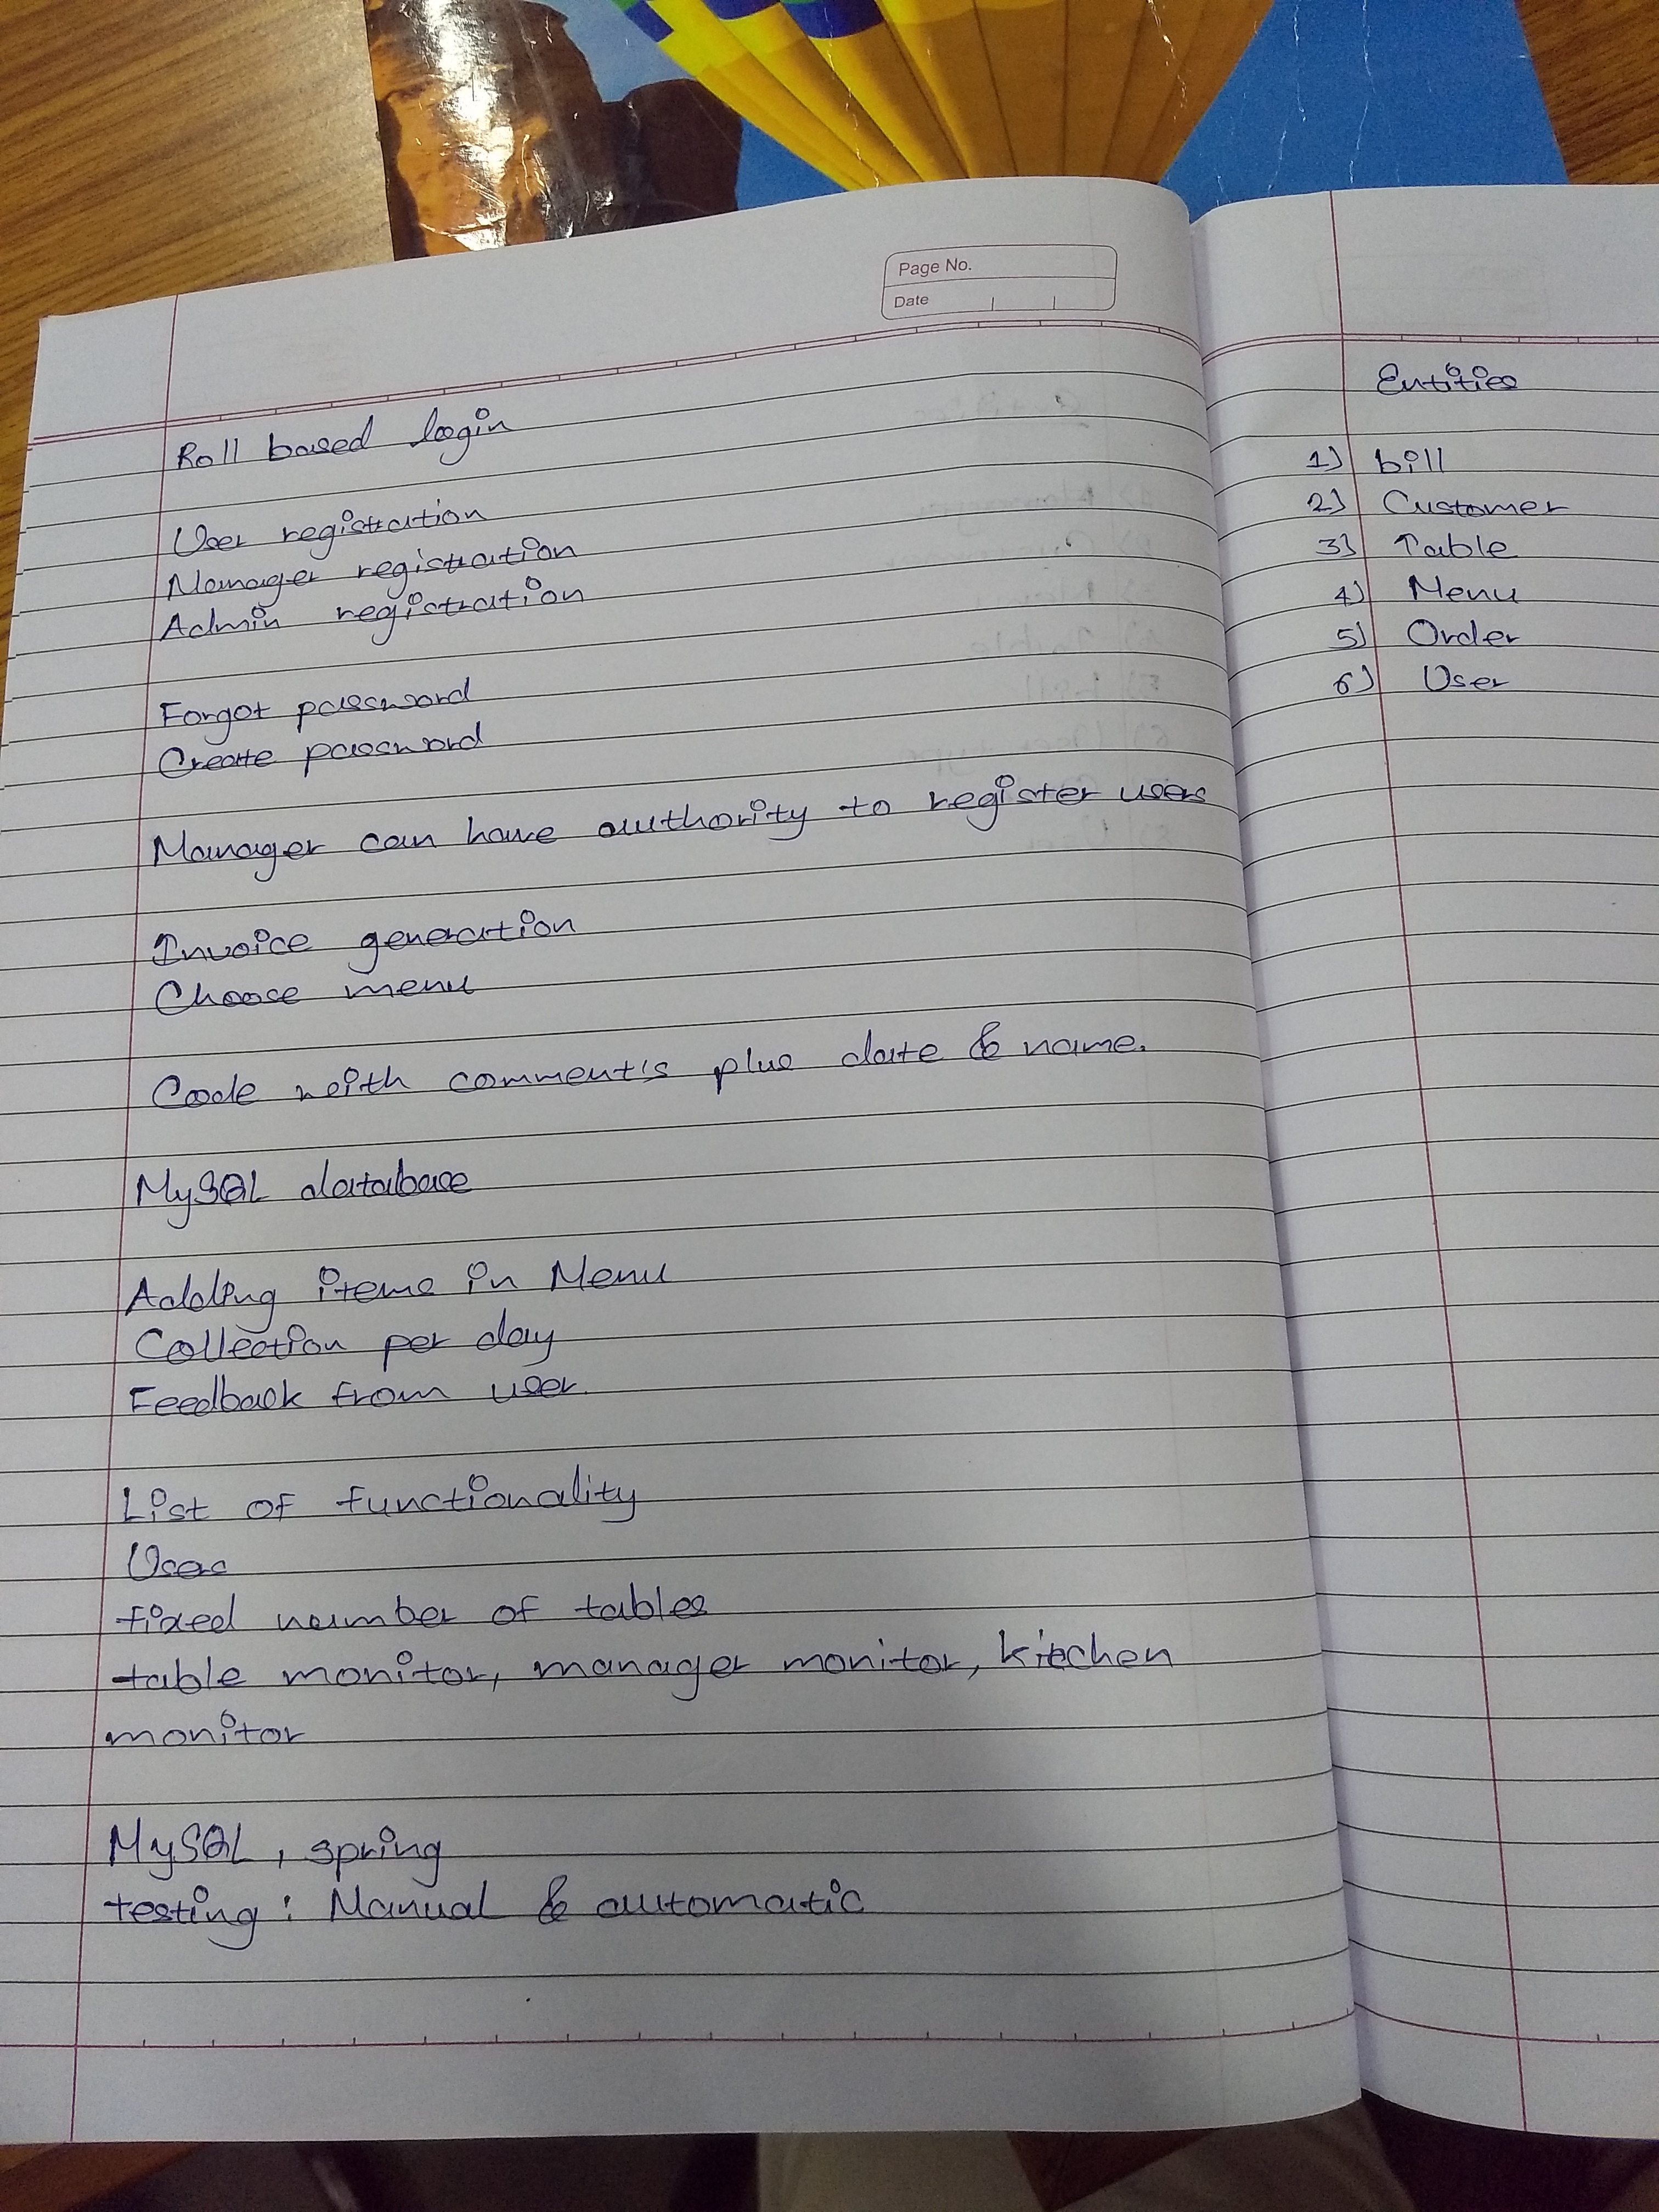 Page No.
Date
Roll based login
User registration
Manager registration
Admin registration
Forgot password
Create password
Manager can have authority to register users
Invoice generation
Choose menu
Code with comment's plus date & name.
MySQL database
Adding items in Menu
Collection per day
Feedback from user.
List of functionality
Uses
fixed number of tables
table monitor, manager monitor, kitchen
monitor
MySQL, spring
testing: Manual & automatic
Entities
1) bill
2) Customer
3) Table
4) Menu
5) Order
6) User